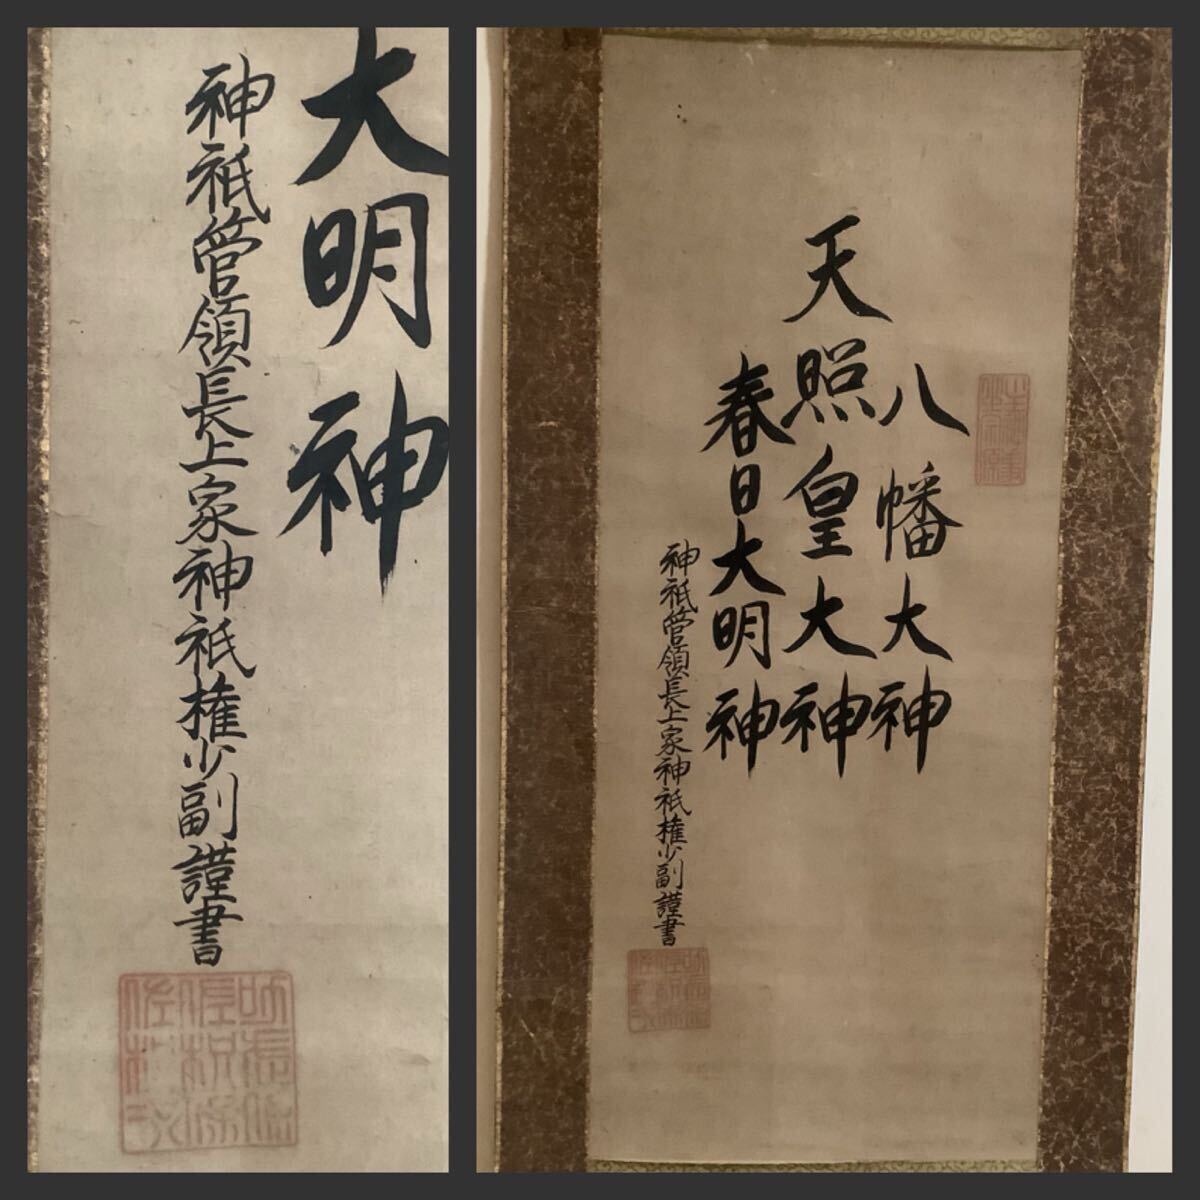 大明神
神祇管領長上家神祇権少副謹書
八幡大神
天照皇大神
春日大明神
神祇管領長上家神祇権少副謹書